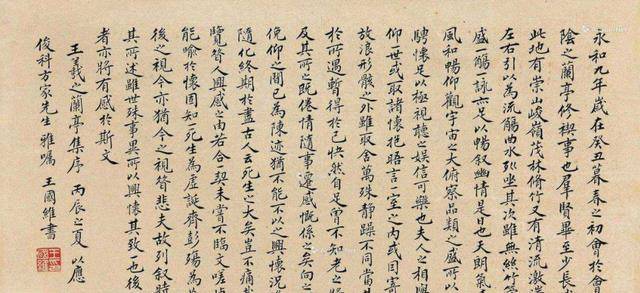 永和九年歲在癸丑暮春之初會於會
陰之蘭亭修禊事也羣賢畢至少長
此地有崇山峻嶺茂林脩竹又有清流激
左右引以為流觴曲水列坐其次雖無絲竹
盛一觴一詠亦足以暢敘幽情是日也天朗氣
風和暢仰觀宇宙之大俯察品類之盛所以
騁懷足以極視聽之娛信可樂也夫人之相與
仰一世或取諸懷抱晤言一室之內或因寄
放浪形骸之外雖取舍萬殊靜躁不同當其
於所遇暫得於己快然自足曾不知老之將
及其所之既倦情隨事遷感慨係之矣向之
俛仰之間已為陳迹猶不能不以之興懷況
隨化終期於盡古人云死生亦大矣豈不痛
覽昔人興感之由若合契未嘗不臨文嗟悼
能喻於懷固知死生為虛誕齊彭殤為
後之視今亦猶今之視昔悲夫故列敘時
其所述雖世殊事異所以興懷其致一也後
者亦將有感於斯文
王羲之蘭亭集序 丙辰之夏 以應
俊科方家先生 雅囑 王國維書